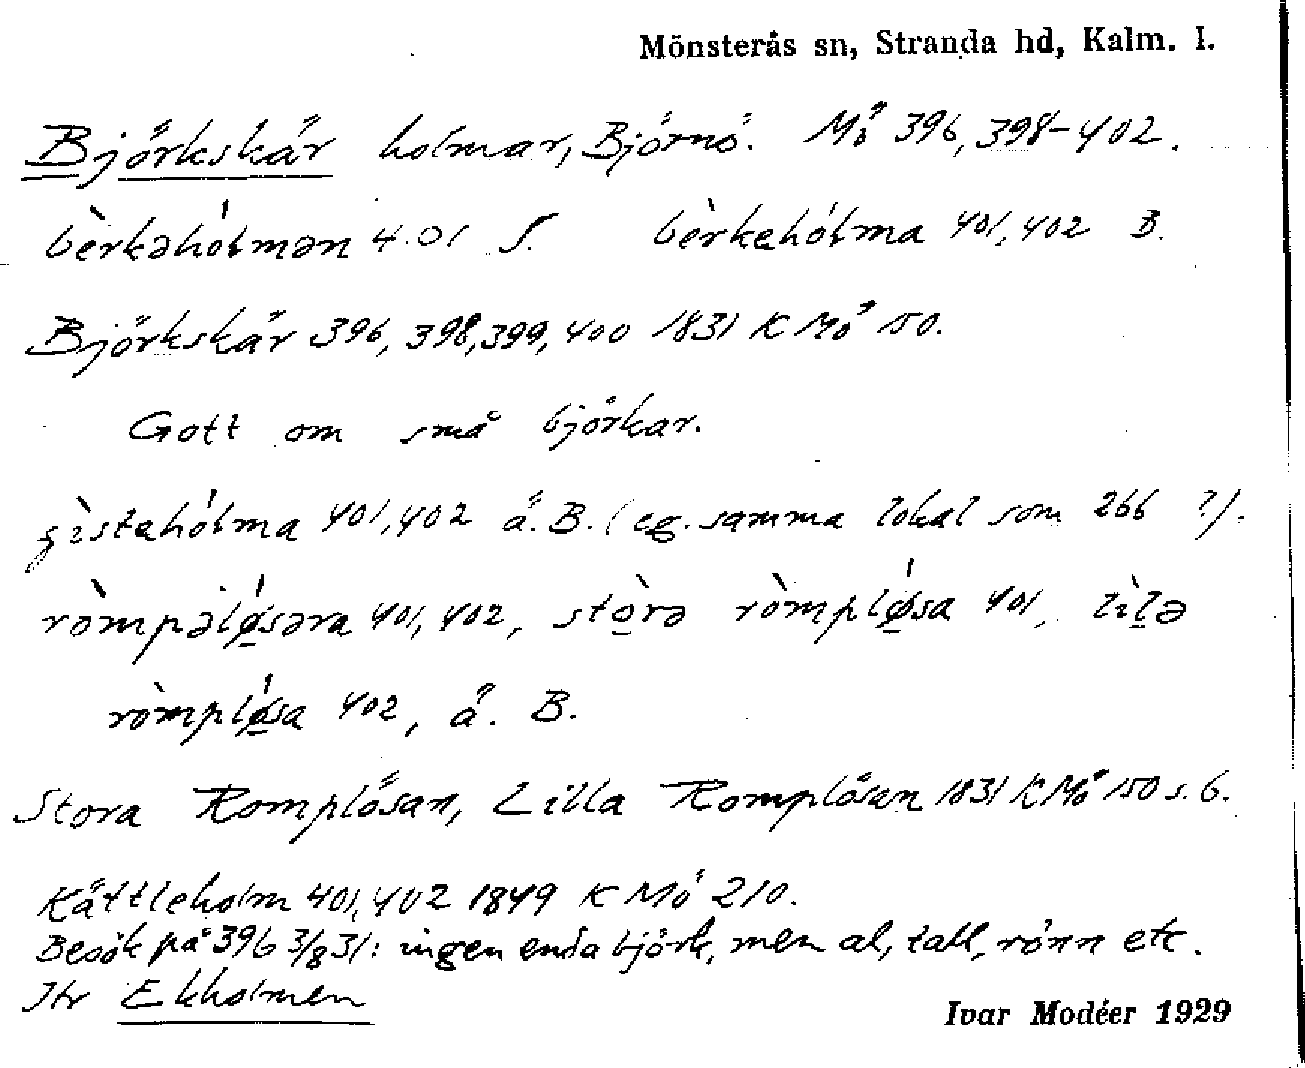 Mönsterås sn, Stranda hd, Kalm. l.
Björkskär holmar, Björnö. Mö 396, 398-402.
bèrkəhólmən 401 S. bèrkehólma 401, 402 B.
Björkskär 396, 398, 399, 400 1831 K Mö 150.
Gott om små björkar.
gìstehólma 401, 402 ä. B. (eg. samma lokal som 266 ?).
ròmpəlǿ̣səra 401, 402, stò̱rə ròmplǿ̣sa 401, lìl̠ə
ròmplǿ̣sa 402, ä. B.
Stora Romplösan, Lilla Romplösan 1831 K Mö 150 s. 6.
Kättleholm 401, 402 1849 K Mö 210.
Besök på 396 3/8 31: ingen enda björk, men al, tall, rönn etc.
Jfr Ekholmen
Ivar Modéer 1929